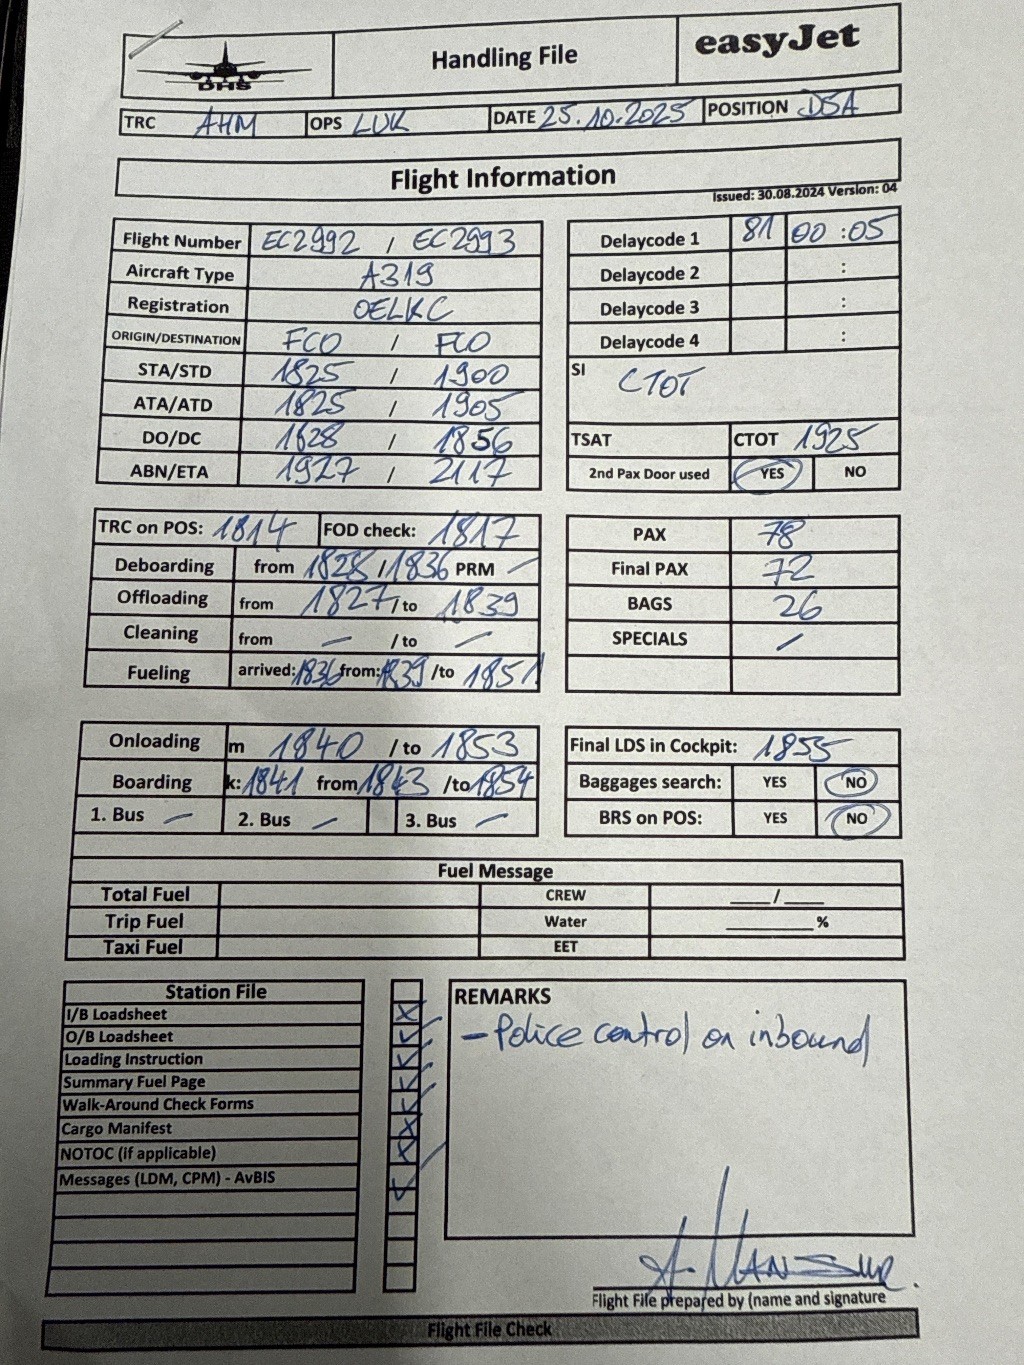 DHS
Handling File
easyJet
TRC AHM OPS LUK DATE 25.10.2025 POSITION D5A
Flight Information
Issued: 30.08.2024 Version: 04
Flight Number EC2992 / EC2993
Aircraft Type A319
Registration OELKC
ORIGIN/DESTINATION FCO / FCO
STA/STD 1825 / 1900
ATA/ATD 1825 / 1905
DO/DC 1828 / 1856
ABN/ETA 1927 / 2117
Delaycode 1 81 00 :05
Delaycode 2 :
Delaycode 3 :
Delaycode 4 :
SI CTOT
TSAT CTOT 1925
2nd Pax Door used YES NO
TRC on POS: 1814 FOD check: 1817
Deboarding from 1828 / 1836 PRM –
Offloading from 1827 /to 1839
Cleaning from – / to –
Fueling arrived: 1836 from: 1839 /to 1851
PAX 78
Final PAX 72
BAGS 26
SPECIALS /
Onloading m 1840 / to 1853
Boarding k: 1841 from 1843 /to 1854
1. Bus – 2. Bus – 3. Bus –
Final LDS in Cockpit: 1855
Baggages search: YES NO
BRS on POS: YES NO
Fuel Message
Total Fuel CREW ____/____
Trip Fuel Water _________ %
Taxi Fuel EET
Station File
I/B Loadsheet
O/B Loadsheet
Loading Instruction
Summary Fuel Page
Walk-Around Check Forms
Cargo Manifest
NOTOC (if applicable)
Messages (LDM, CPM) - AvBIS
REMARKS
- Police control on inbound
A. MANSUR
Flight File prepared by (name and signature
Flight File Check